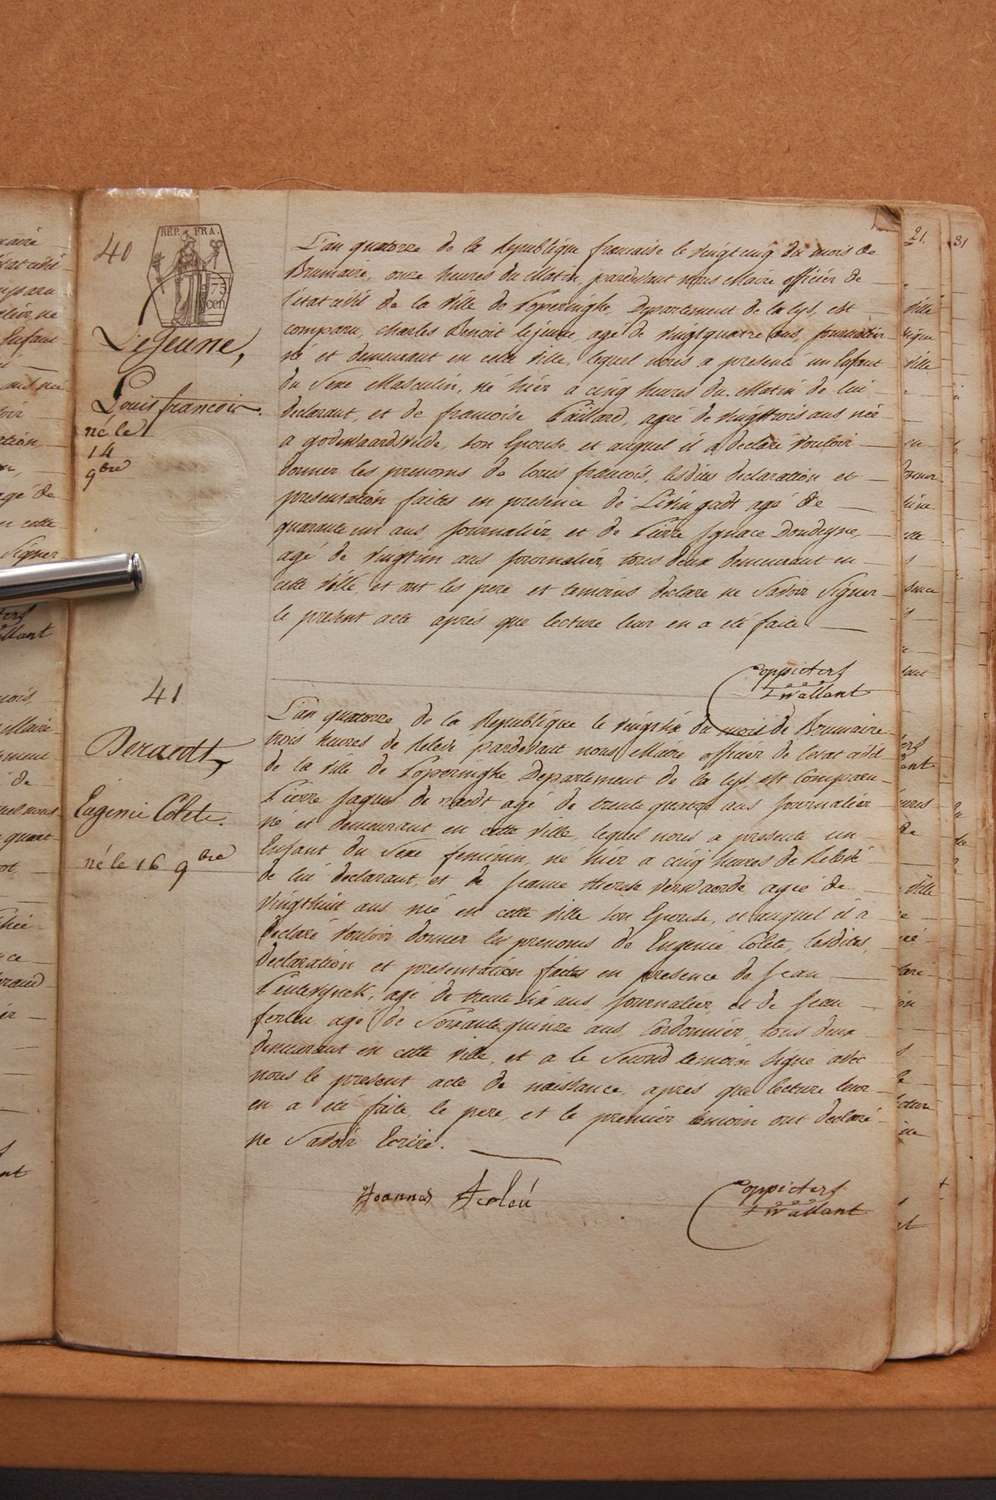 40
REP. FRA.
75
cen
Lejeune,
Louis francois
né le
14
9bre
L'an quatorze de la Republique francaise le vingt cinq du mois de
Brumaire, onze heures du Matin, pardevant nous Maire officier de
l'etat civil de la ville de Poperinghe, Departement de la Lys, est
comparu, charles Benoit lejeune, agé de vingtquatre ans, journalier
né et demeurant en cette ville, lequel nous a presenté un Enfant
du Sexe Masculin, né hier a cinq heures du Matin de lui
declarant, et de francoise Taillard, agée de vingttrois ans née
a godewaersvelde, son Epouse, et auquel il a declaré vouloir
donner les prenoms de Louis francois, lesdites declaration et
presentation faites en presence de Livin gadt agé de
quarante un ans journalier et de Pierre Ignace Doudeyne,
agé de vingtun ans journalier, tous deux demeurant en
cette ville, et ont les pere et temoins declare ne savoir signer
le present acte après que lecture leur en a été faite.
Coppieters
T'Wallant
41
Deraedt,
Eugenie Colete.
né le 16 9bre
L'an quatorze de la Republique le vingtsix du mois de Brumaire
trois heures de Relevé pardevant nous Maire officier de l'etat civil
de la ville de Poperinghe Departement de la Lys est comparu
Pierre Jaques de raedt agé de trente quatre ans journalier
né et demeurant en cette ville lequel nous a presenté un
Enfant du Sexe feminin, né hier a cinq heures de Relevé
de lui declarant, et de Jeanne therese verwaerde agée de
vingthuit ans née en cette ville son Epouse, et auquel il a
declaré vouloir donner les prenoms de Eugenie Colete, lesdites
declaration et presentation faites en presence de Jean
Peuterynck, agé de trente six ans, journalier, et de Jean
ferleu agé de Soixante quinze ans Cordonnier, tous deux
demeurant en cette ville, et a le Second temoin signé avec
nous le present acte de naissance, après que lecture leur
en a été faite, le pere, et le premier temoin ont declaré
ne savoir Ecrire.
Joannes ferleu
Coppieters
T'Wallant
21.
31